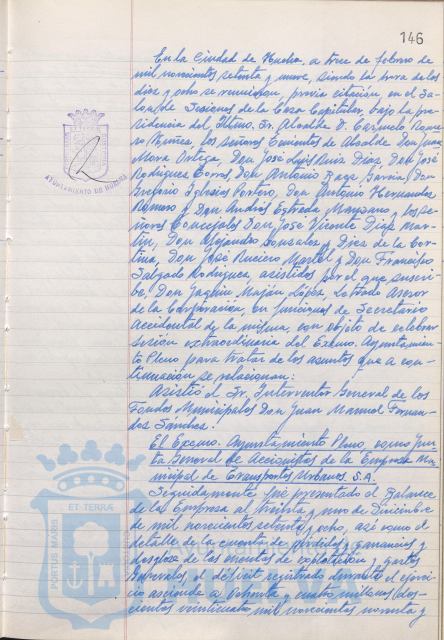 146
En la Ciudad de Huelva, a trece de febrero de
mil novecientos setenta y nueve, siendo la hora de las
diez y ocho se reunieron, previa citación, en el Sa-
lón de Sesiones de la Casa Capitular, bajo la pre-
sidencia del Iltmo. Sr. Alcalde D. Carmelo Rome-
ro Núñez, los señores Tenientes de Alcalde Don Juan
Mora Ortega, Don José Luis Ruiz Díaz, Don José
Rodríguez Don Antonio García, Don
Gregorio Iglesias Don Antonio Hernández
Romero y Don Andrés Estrada Manzano y los Se-
ñores Concejales Don José Vicente Díaz Mar-
tín, Don Alejandro González y Díez de la Cor-
tina, Don José Martel y Don Francisco
Salgado Rodríguez, asistidos por el que suscri-
be, Don Joaquín López, Letrado Asesor
de la Corporación, en funciones de Secretario
Accidental de la misma, con objeto de celebrar
sesión extraordinaria del Excmo. Ayuntamien-
to Pleno para tratar de los asuntos que a con-
tinuación se relacionan:
Asistió el Sr. Interventor General de los
Fondos Municipales Don Juan Manuel Fernan-
dez Sánchez.
El Excmo. Ayuntamiento Pleno, como Jun-
ta General de Accionistas de la Empresa Mu-
nicipal de Transportes Urbanos, S.A.
Seguidamente fué presentado el Balance
de la Empresa al treinta y uno de Diciembre
de mil novecientos setenta y ocho, así como el
detalle de la cuenta de pérdidas y ganancias y
desglose de las cuentas de explotación y gastos
generales, el déficit registrado durante el ejerci-
cio asciende a ochenta y cuatro millones dos-
cientos veinticuatro mil novecientos noventa y
AYUNTAMIENTO DE HUELVA
PORTUS MARIS
ET TERRA